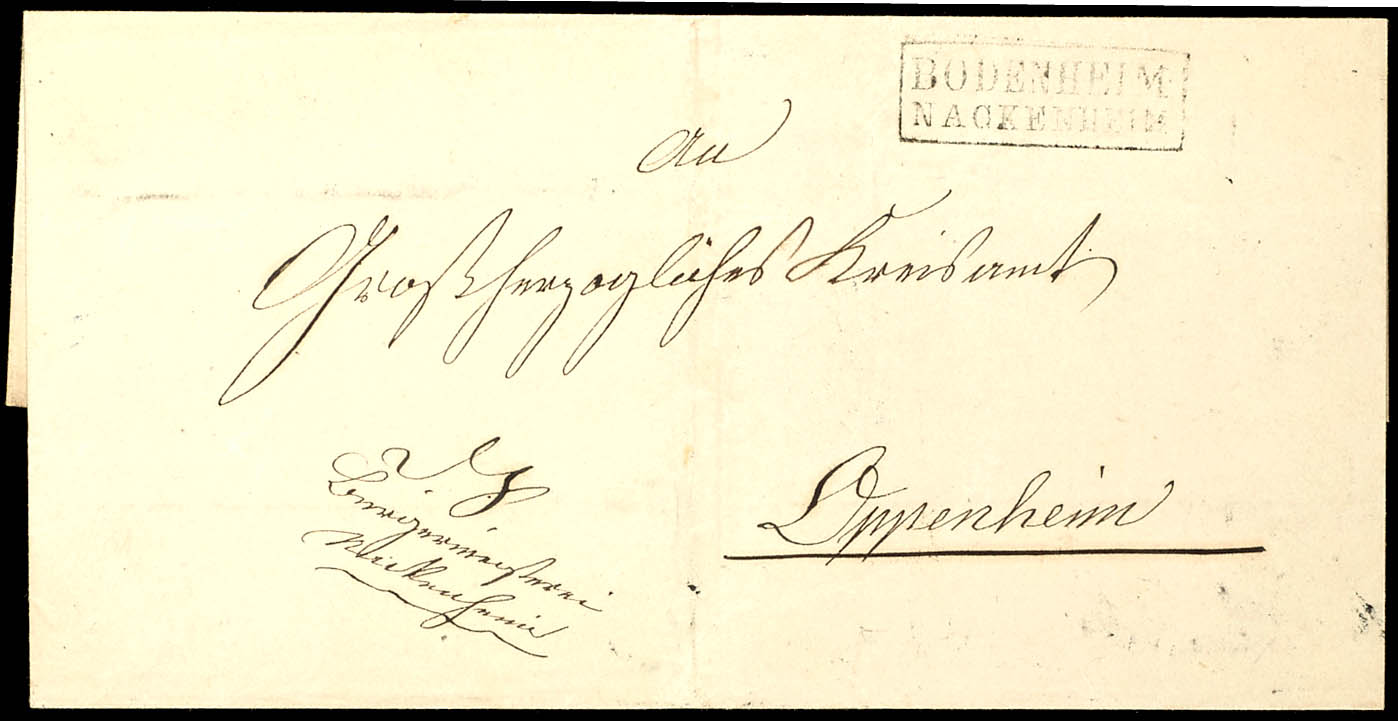 BODENHEIM
NACKENHEIM
An
Großherzogliches Kreisamt
Oppenheim
Bürgermeisterei
Nackenheim